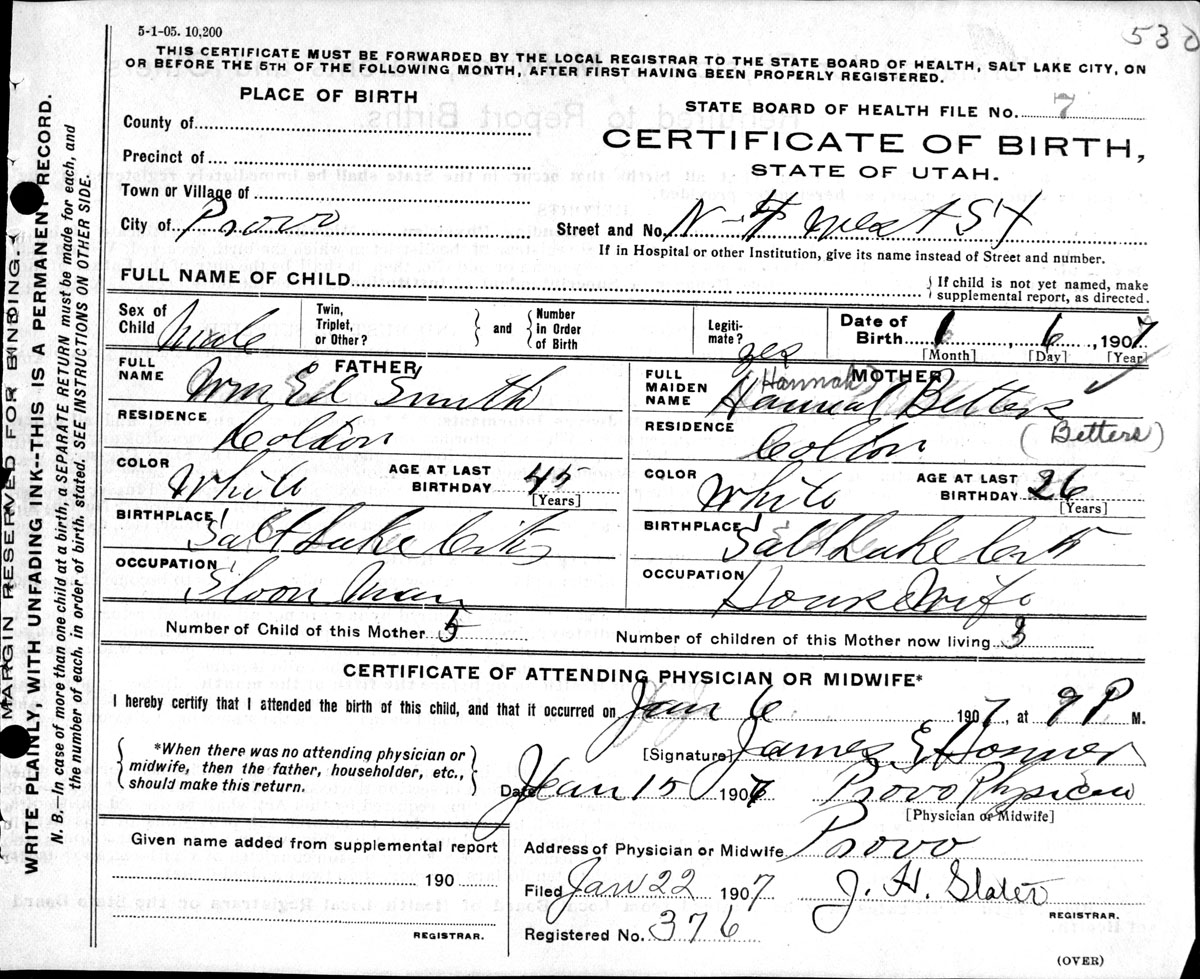 5-1-05. 10,200
530
THIS CERTIFICATE MUST BE FORWARDED BY THE LOCAL REGISTRAR TO THE STATE BOARD OF HEALTH, SALT LAKE CITY, ON
OR BEFORE THE 5TH OF THE FOLLOWING MONTH, AFTER FIRST HAVING BEEN PROPERLY REGISTERED.
PLACE OF BIRTH
STATE BOARD OF HEALTH FILE No. 7
County of
CERTIFICATE OF BIRTH,
Precinct of
STATE OF UTAH.
Town or Village of
City of Provo
Street and No. N 4 West St
If in Hospital or other Institution, give its name instead of Street and number.
FULL NAME OF CHILD
{If child is not yet named, make
supplemental report, as directed.
Sex of Child Male
Twin, Triplet, or Other? { } and { Number in Order of Birth
Legitimate? yes
Date of Birth 1 6, 1907
[Month] [Day] [Year]
FATHER
FULL NAME Wm Ed Smith
RESIDENCE Colton
COLOR White
AGE AT LAST BIRTHDAY 45
[Years]
BIRTHPLACE Salt Lake City
OCCUPATION
MOTHER
FULL MAIDEN NAME Hannah Betters
(Hannah)
(Betters)
RESIDENCE Colton
COLOR White
AGE AT LAST BIRTHDAY 26
[Years]
BIRTHPLACE Salt Lake City
OCCUPATION House Wife
Number of Child of this Mother 5
Number of children of this Mother now living 3
CERTIFICATE OF ATTENDING PHYSICIAN OR MIDWIFE*
I hereby certify that I attended the birth of this child, and that it occurred on Jan 6 1907, at 9 P M.
{*When there was no attending physician or
midwife, then the father, householder, etc.,
should make this return.}
[Signature] James E
Date Jan 15 1907
Provo Physician
[Physician or Midwife]
Given name added from supplemental report
190
REGISTRAR.
Address of Physician or Midwife Provo
Filed Jan 22 1907
J. H. Slater
REGISTRAR.
Registered No. 376
(OVER)
MARGIN RESERVED FOR BINDING.
WRITE PLAINLY, WITH UNFADING INK--THIS IS A PERMANENT RECORD.
N. B. In case of more than one child at a birth, a SEPARATE RETURN must be made for each, and
the number of each, in order of birth, stated. SEE INSTRUCTIONS ON OTHER SIDE.